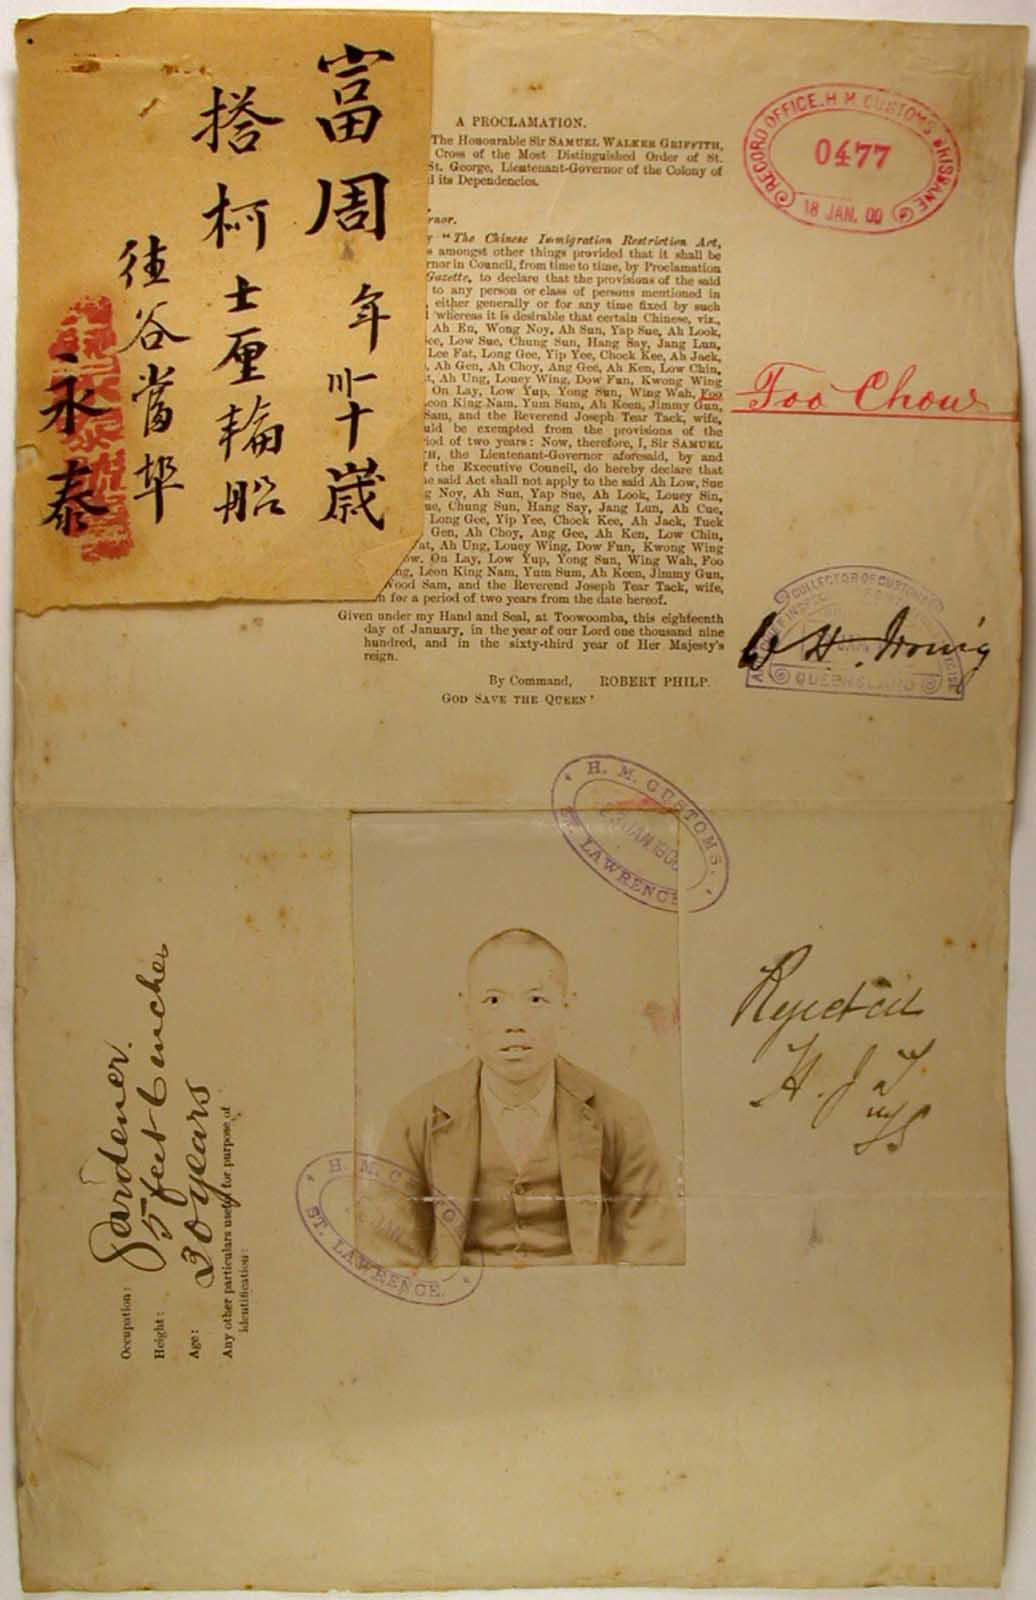 富周年卅十歲
搭柯士厘輪船
往谷當埠
永泰
A PROCLAMATION.
The Honourable Sir SAMUEL WALKER GRIFFITH,
Cross of the Most Distinguished Order of St.
St. George, Lieutenant-Governor of the Colony of
its Dependencies.
"The Chinese Immigration Restriction Act,
amongst other things provided that it shall be
in Council, from time to time, by Proclamation
Gazette, to declare that the provisions of the said
to any person or class of persons mentioned in
either generally or for any time fixed by such
whereas it is desirable that certain Chinese, viz.,
Ah En, Wong Noy, Ah Sun, Yap Sue, Ah Look,
Low Sue, Chung Sun, Hang Say, Jang Lun,
Lee Fat, Long Gee, Yip Yee, Chock Kee, Ah Jack,
Ah Gen, Ah Choy, Ang Gee, Ah Ken, Low Chin,
Ah Ung, Louey Wing, Dow Fun, Kwong Wing
On Lay, Low Yup, Yong Sun, Wing Wah, Foo
Leon King Nam, Yum Sum, Ah Keen, Jimmy Gun,
Sam, and the Reverend Joseph Tear Tack, wife,
be exempted from the provisions of the
of two years: Now, therefore, I, Sir SAMUEL
the Lieutenant-Governor aforesaid, by and
the Executive Council, do hereby declare that
said Act shall not apply to the said Ah Low, Sue
Noy, Ah Sun, Yap Sue, Ah Look, Louey Sin,
Chung Sun, Hang Say, Jang Lun, Ah Cue,
Long Gee, Yip Yee, Chock Kee, Ah Jack, Tuck
Gen, Ah Choy, Ang Gee, Ah Ken, Low Chin,
Ah Ung, Louey Wing, Dow Fun, Kwong Wing
On Lay, Low Yup, Yong Sun, Wing Wah, Foo
Leon King Nam, Yum Sum, Ah Keen, Jimmy Gun,
Sam, and the Reverend Joseph Tear Tack, wife,
for a period of two years from the date hereof.
Given under my Hand and Seal, at Toowoomba, this eighteenth
day of January, in the year of our Lord one thousand nine
hundred, and in the sixty-third year of Her Majesty's
reign.
By Command, ROBERT PHILP.
GOD SAVE THE QUEEN!
RECORD OFFICE. H. M. CUSTOMS BRISBANE
0477
18 JAN. 00
Foo Chow
COLLECTOR OF CUSTOMS
QUEENSLAND
W H Irving
H. M. CUSTOMS.
23 JAN. 1900
ST. LAWRENCE.
Rejected
H. M. CUSTOMS
JAN
ST. LAWRENCE.
Occupation: Gardener.
Height: 5 feet 6 inches
Age: 30 years
Any other particulars useful for purpose of
identification: